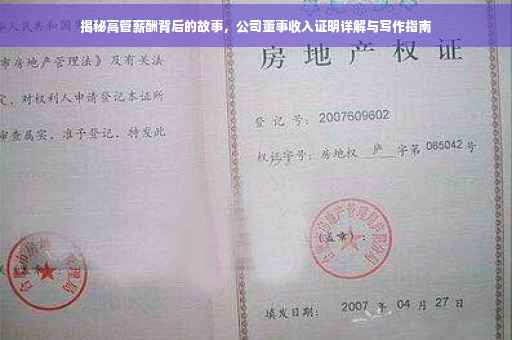 揭秘高管薪酬背后的故事，公司董事收入证明详解与写作指南
华人民共和国
市房地产管理法》及有关
定，对权利人申请登记本证所
审查属实，准予登记，特发此
房地产权证
登记号：2007609602
权证字号：房地权 庐 字第 065042 号
(盖章)：
填发日期：2007 年 04 月 27 日